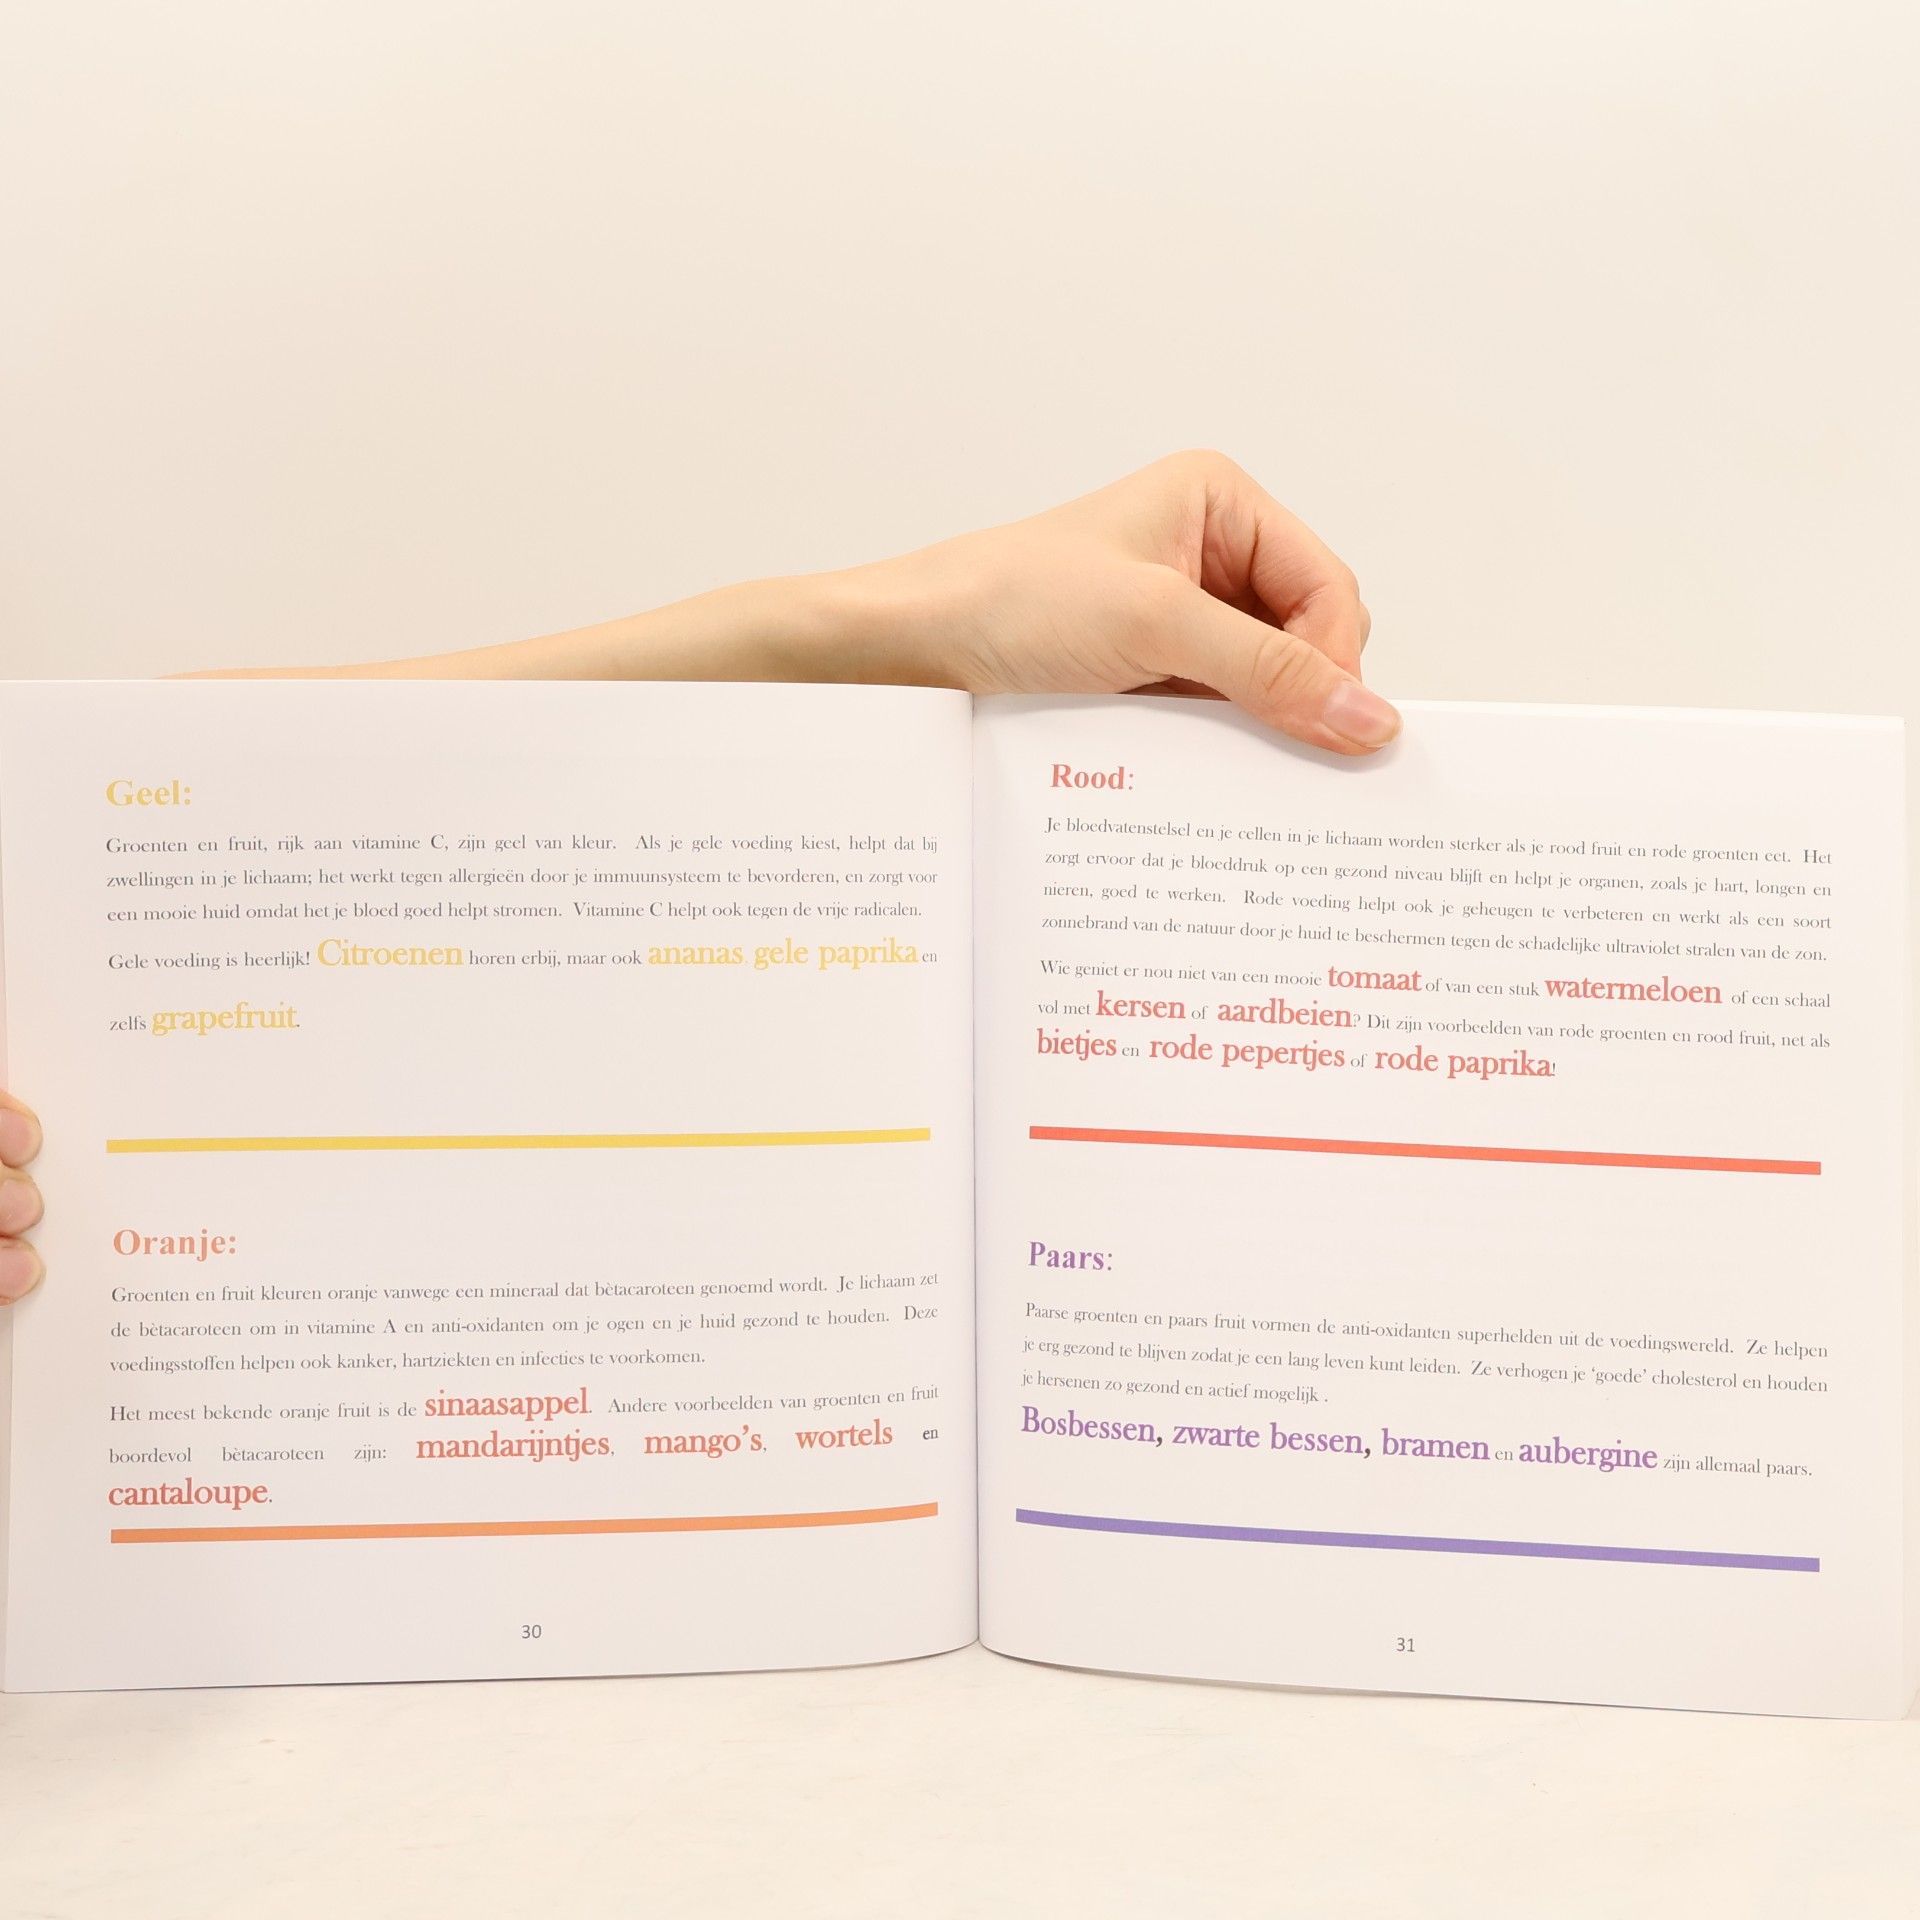 Geel:
Groenten en fruit, rijk aan vitamine C, zijn geel van kleur. Als je gele voeding kiest, helpt dat bij
zwellingen in je lichaam; het werkt tegen allergieën door je immuunsysteem te bevorderen, en zorgt voor
een mooie huid omdat het je bloed goed helpt stromen. Vitamine C helpt ook tegen de vrije radicalen.
Gele voeding is heerlijk! Citroenen horen erbij, maar ook ananas, gele paprika en
zelfs grapefruit.
Oranje:
Groenten en fruit kleuren oranje vanwege een mineraal dat bètacaroteen genoemd wordt. Je lichaam zet
de bètacaroteen om in vitamine A en anti-oxidanten om je ogen en je huid gezond te houden. Deze
voedingsstoffen helpen ook kanker, hartziekten en infecties te voorkomen.
Het meest bekende oranje fruit is de sinaasappel. Andere voorbeelden van groenten en fruit
boordevol bètacaroteen zijn: mandarijntjes, mango's, wortels en
cantaloupe.
30
Rood:
Je bloedvatenstelsel en je cellen in je lichaam worden sterker als je rood fruit en rode groenten eet. Het
zorgt ervoor dat je bloeddruk op een gezond niveau blijft en helpt je organen, zoals je hart, longen en
nieren, goed te werken. Rode voeding helpt ook je geheugen te verbeteren en werkt als een soort
zonnebrand van de natuur door je huid te beschermen tegen de schadelijke ultraviolet stralen van de zon.
Wie geniet er nou niet van een mooie tomaat of van een stuk watermeloen of een schaal
vol met kersen of aardbeien? Dit zijn voorbeelden van rode groenten en rood fruit, net als
bietjes en rode pepertjes of rode paprika!
Paars:
Paarse groenten en paars fruit vormen de anti-oxidanten superhelden uit de voedingswereld. Ze helpen
je erg gezond te blijven zodat je een lang leven kunt leiden. Ze verhogen je 'goede' cholesterol en houden
je hersenen zo gezond en actief mogelijk .
Bosbessen, zwarte bessen, bramen en aubergine zijn allemaal paars.
31